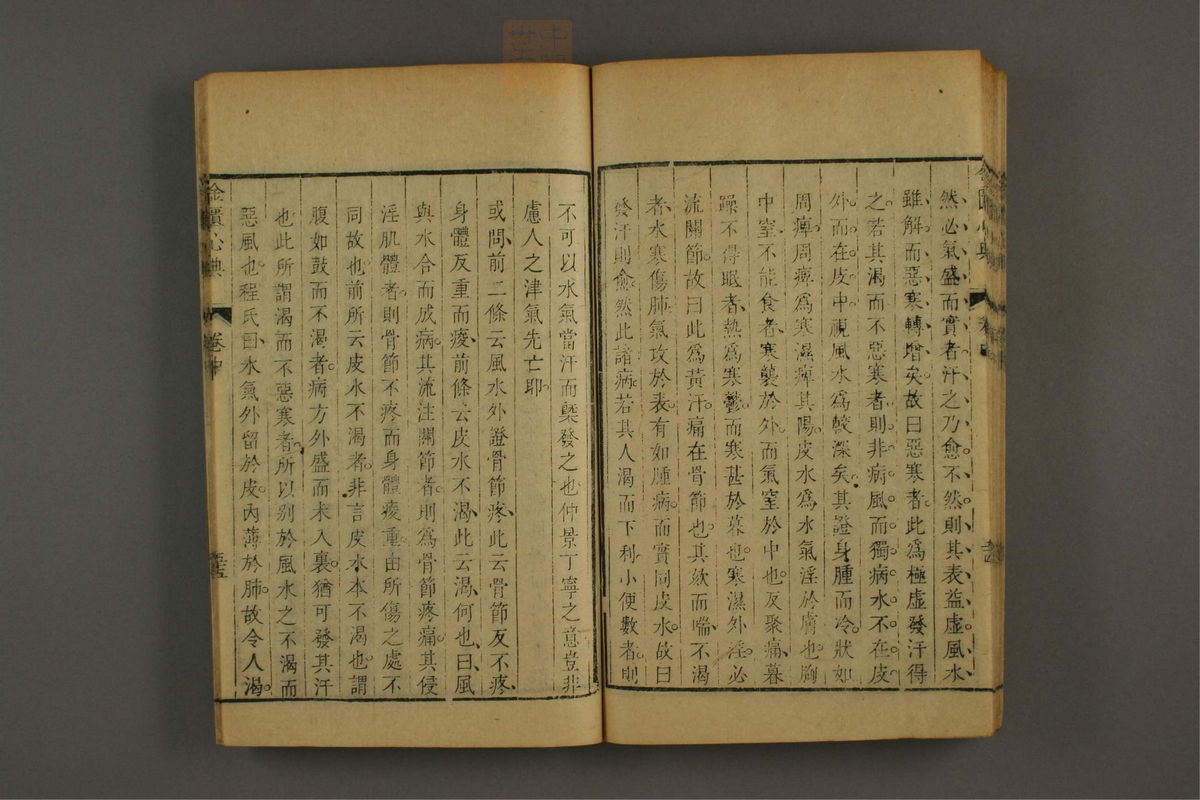 然必氣盛而實者汗之乃愈不然則其表益虛風水
雖解而惡寒轉增矣故曰惡寒者此為極虛發汗得
之若其渴而不惡寒者則非病風而獨病水不在皮
外而在皮中視風水為較深矣其證身腫而冷狀如
周痺周痺為寒濕痺其陽皮水為水氣淫於膚也胸
中窒不能食者寒襲於外而氣窒於中也反聚痛暮
躁不得眠者熱為寒鬱而寒甚於暮也寒濕外淫必
流關節故曰此為黃汗痛在骨節也其欬而喘不渴
者水寒傷肺氣攻於表有如腫病而實同皮水故曰
發汗則愈然此諸病若其人渴而下利小便數者則
不可以水氣當汗而槩發之也仲景丁寧之意豈非
慮人之津氣先亡耶
或問前二條云風水外證骨節疼此云骨節反不疼
身體反重而痠前條云皮水不渴此云渴何也曰風
與水合而成病其流注關節者則為骨節疼痛其侵
淫肌體者則骨節不疼而身體痠重由所傷之處不
同故也前所云皮水不渴者非言皮水本不渴也謂
腹如鼓而不渴者病方外盛而未入裏猶可發其汗
也此所謂渴而不惡寒者所以别於風水之不渴而
惡風也程氏曰水氣外留於皮內薄於肺故令人渴
金匱心典
卷中